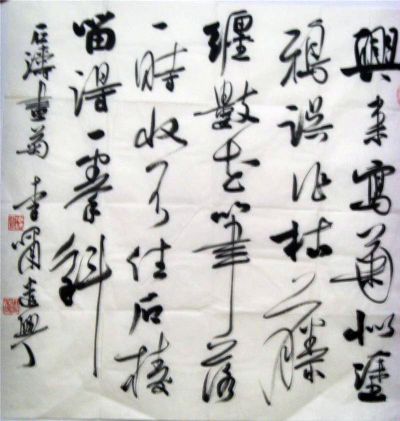 興来寫菊似塗
鴉誤作枯藤
纏數花筆落
一時收不住石棱
留得一拳斜
石濤畫菊 李